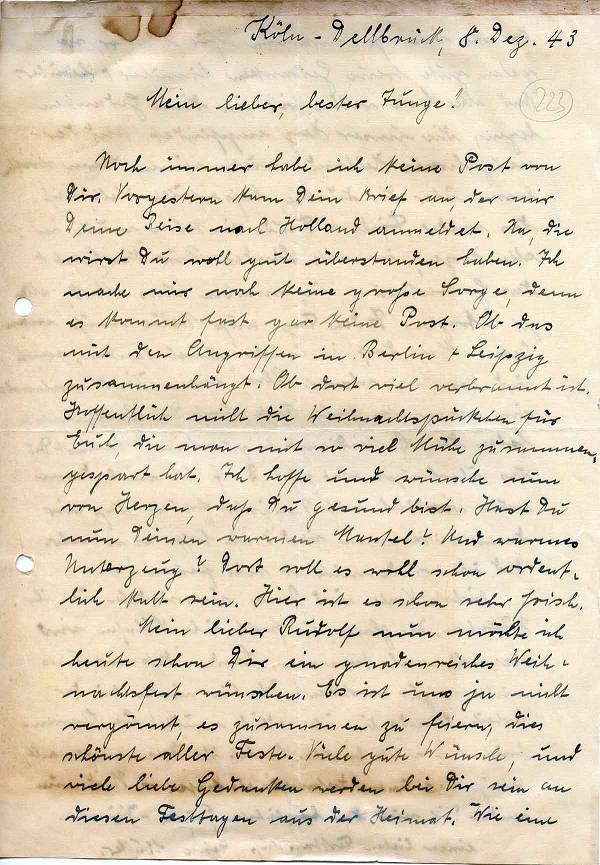 Köln-Dellbrück, 8. Dez. 43
223
Mein lieber, bester Junge!
Noch immer habe ich keine Post von
Dir. Vorgestern kam Dein Brief an, der mir
Deine Reise nach Holland anmeldet. Na, die
wirst Du wohl gut überstanden haben. Ich
mache mir noch keine große Sorge, denn
es kommt fast gar keine Post. Ob das
mit den Angriffen in Berlin + Leipzig
zusammenhängt. Ob dort viel verbrannt ist.
Hoffentlich nicht die Weihnachtspäckchen für
Euch, die man mit so viel Mühe zusammen-
gespart hat. Ich hoffe und wünsche nun
von Herzen, daß Du gesund bist. Hast Du
nun Deinen warmen Mantel? Und warmes
Unterzeug? Dort soll es wohl schon ordent-
lich kalt sein. Hier ist es schon sehr frisch.
Mein lieber Rudolf nun möchte ich
heute schon Dir ein gnadenreiches Weih-
nachtsfest wünschen. Es ist uns ja nicht
vergönnt, es zusammen zu feiern, dies
schönste aller Feste. Viele gute Wünsche, und
viele liebe Gedanken werden bei Dir sein an
diesen Festtagen aus der Heimat. Wie eine